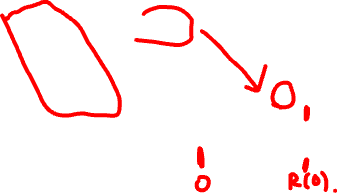 O,
0 R(0).